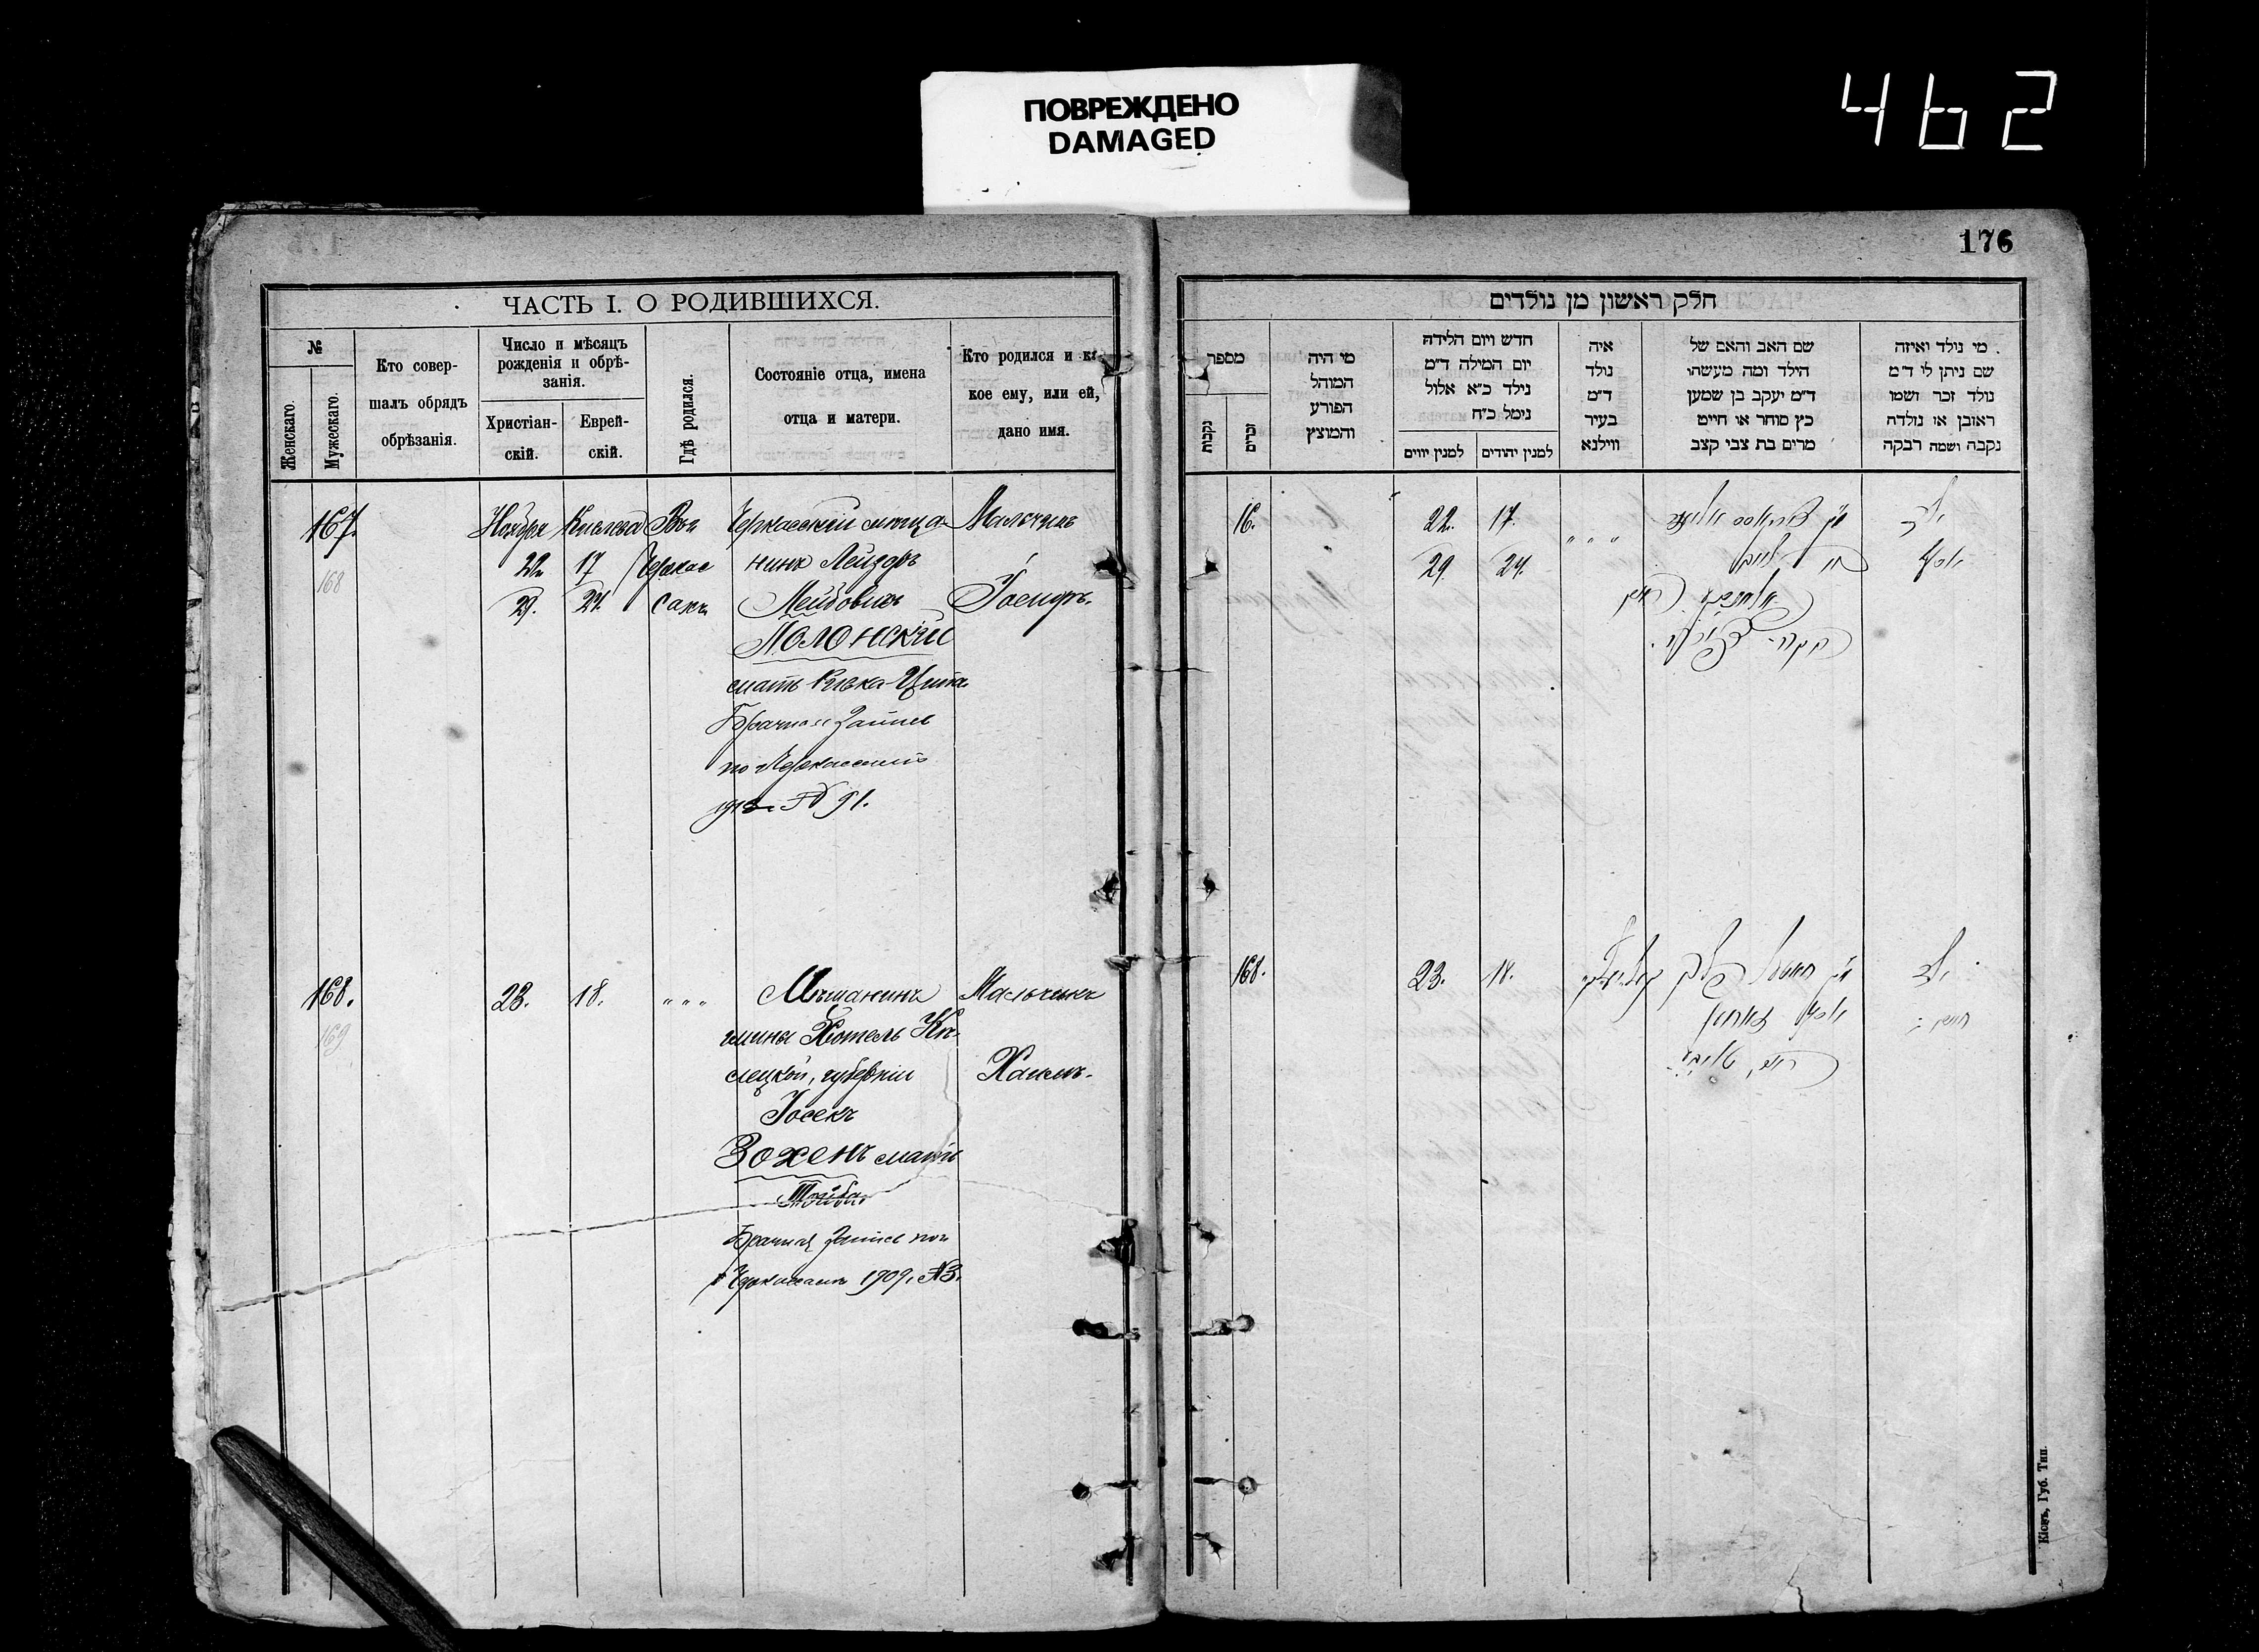 ПОВРЕЖДЕНО
DAMAGED
462
176
ЧАСТЬ I. О РОДИВШИХСЯ.
№
Женскаго.
Мужескаго.
Кто совер-
шалъ обрядъ
обрѣзанія.
Число и мѣсяцъ
рожденія и обрѣ-
занія.
Христіан-
скій.
Еврей-
скій.
Гдѣ родился.
Состояніе отца, имена
отца и матери.
Кто родился и ка
кое ему, или ей,
дано имя.
167.
168
Ноября
22
29.
Кислева
17
24.
Въ
Черкас
сахъ
Черкасскій мѣща-
нинъ Лейзоръ
Лейбовичъ
Полонскій
мать Ривка-Ципа
Брачная запись
по Черкассамъ
1912 № 91.
Мальчикъ
Іосифъ.
168.
169
23.
18.
" " "
Мѣщанинъ
гмины Хотель Кѣ-
лецкой, губерніи
Іосекъ
Зохенъ мать
Тойба
Брачная запись по
Черкассамъ 1909, №3.
Мальчикъ
Хаимъ.
חלק ראשון מן נולדים
מספר
נקבות
זכרים
מי היה
המוהל
הפורע
והמוצץ
חדש ויום הלידה
יום המילה ד״מ
נילד כ״א אלול
נימל כ״ח
למנין יווים
למנין יהודים
איה
נולד
ד״מ
בעיר
ווילנא
שם האב והאם של
הילד ומה מעשהו
ד״מ יעקב בן שמען
כץ סוחר או חייט
מרים בת צבי קצב
מי נילד ואיזה
שם ניתן לו ד״מ
נולד זכר ושמו
ראובן או נולדה
נקבה ושמה רבקה
16.
22.
29.
17.
24.
" " "
ילד
יוסף
168.
23.
18.
ילד
חיים
Кіевъ, Губ. Тип.